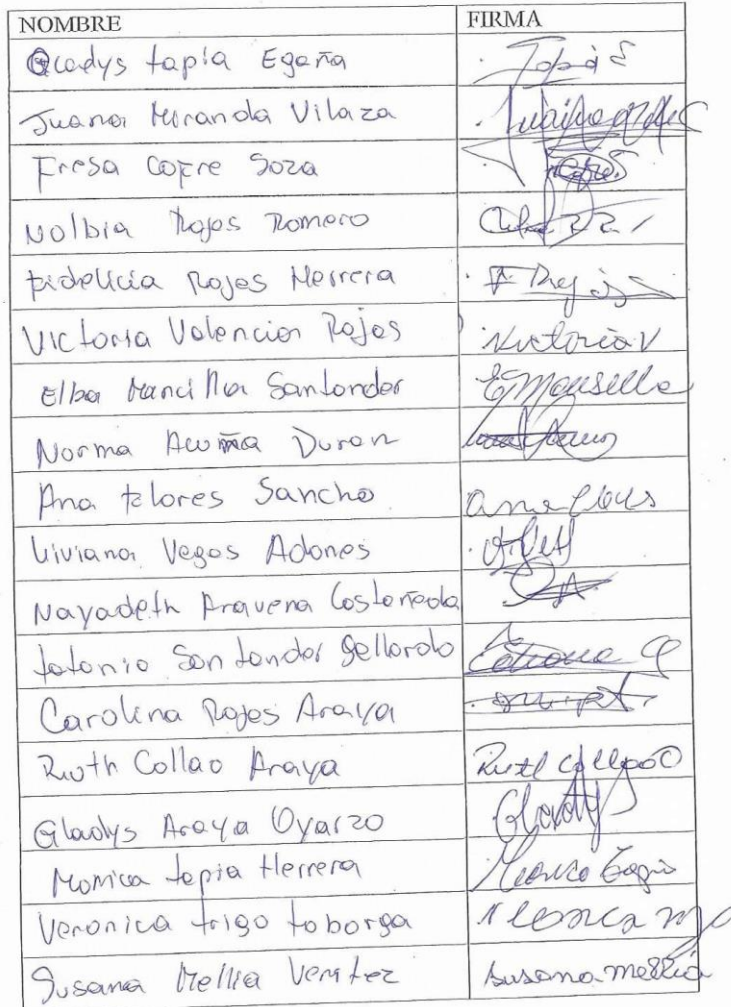 NOMBRE FIRMA
Gladys tapia Egaña Tapia E
Juana Miranda Vilaza
Fresa Cofre Soza
Nolbia Rojas Romero
Fidelicia Rojas Herrera
Victoria Valencia Rojas Victoria V
Elba Mancilla Santander E Mansilla
Norma Acuña Duran
Ana Flores Sancho Ana Flores
Viviana Vegas Adones
Nayadeth Aravena Castañeda
tatania Santander Gallardo
Carolina Rojas Araya
Ruth Collao Araya Ruth Collao
Gladys Araya Oyarzo Gladys
Monica tapia Herrera Monica Tapia
Veronica trigo toborga
Susana Mella Venitez Susana mella